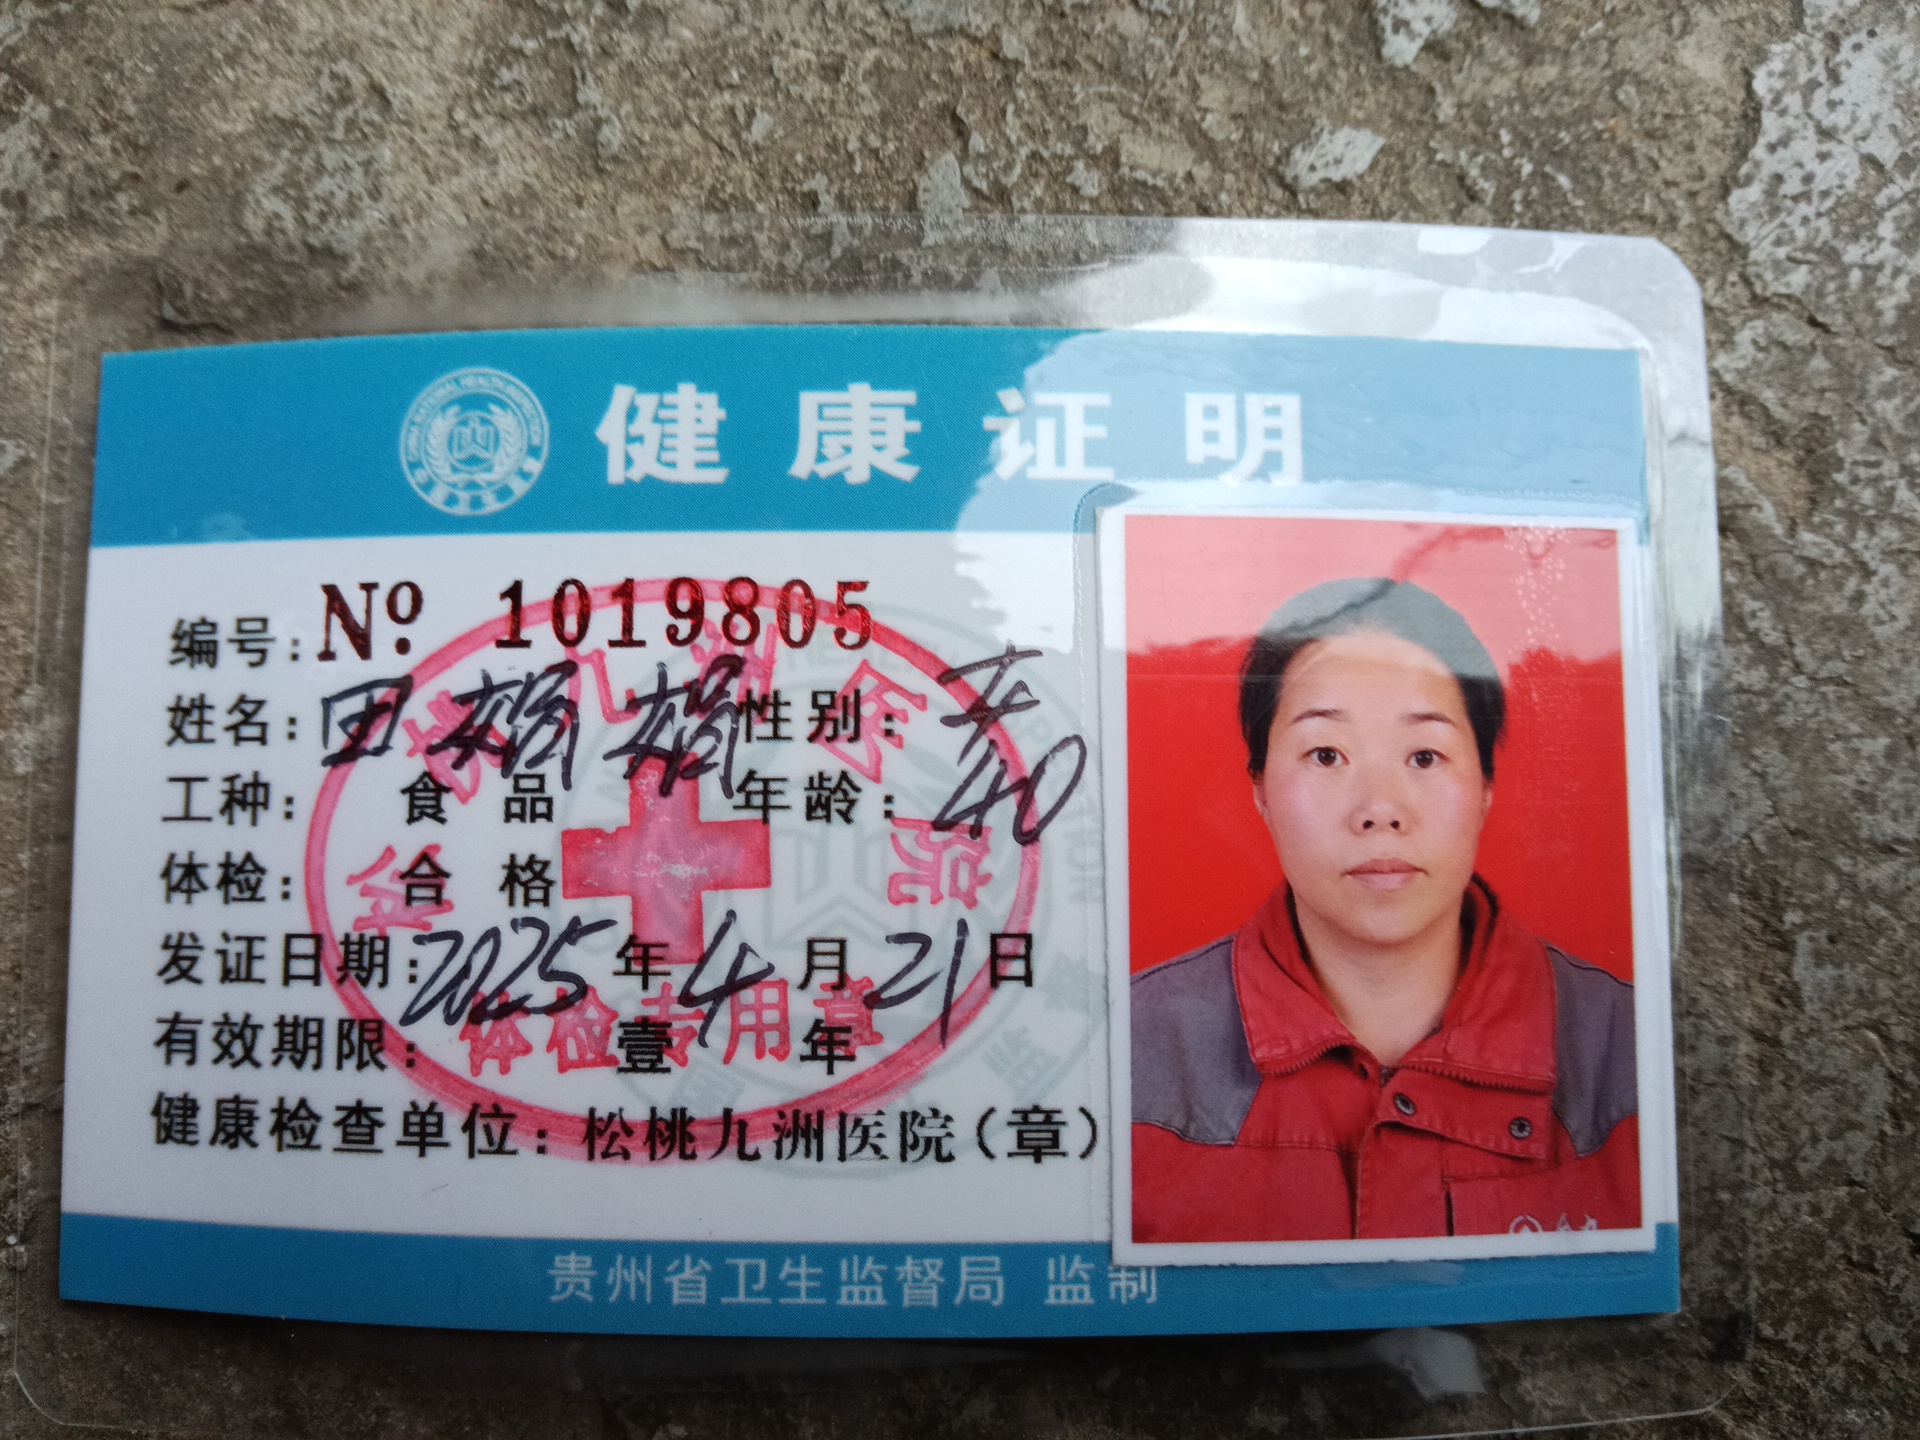 健康证明
编号: Nº 1019805
姓名: 田娟娟 性别: 女
工种: 食品 年龄: 40
体检: 合格
发证日期: 2025年4月21日
有效期限: 壹年
健康检查单位: 松桃九洲医院(章)
松桃九洲医院
体检专用章
贵州省卫生监督局 监制